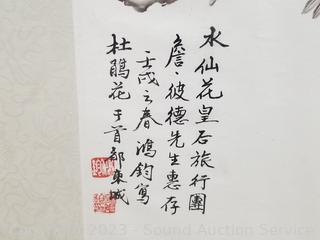 水仙花皇石旅行團
詹、彼德先生惠存
壬戌之春鴻鈞寫
杜鵑花于首都東城
2023 - Sound Auction Service